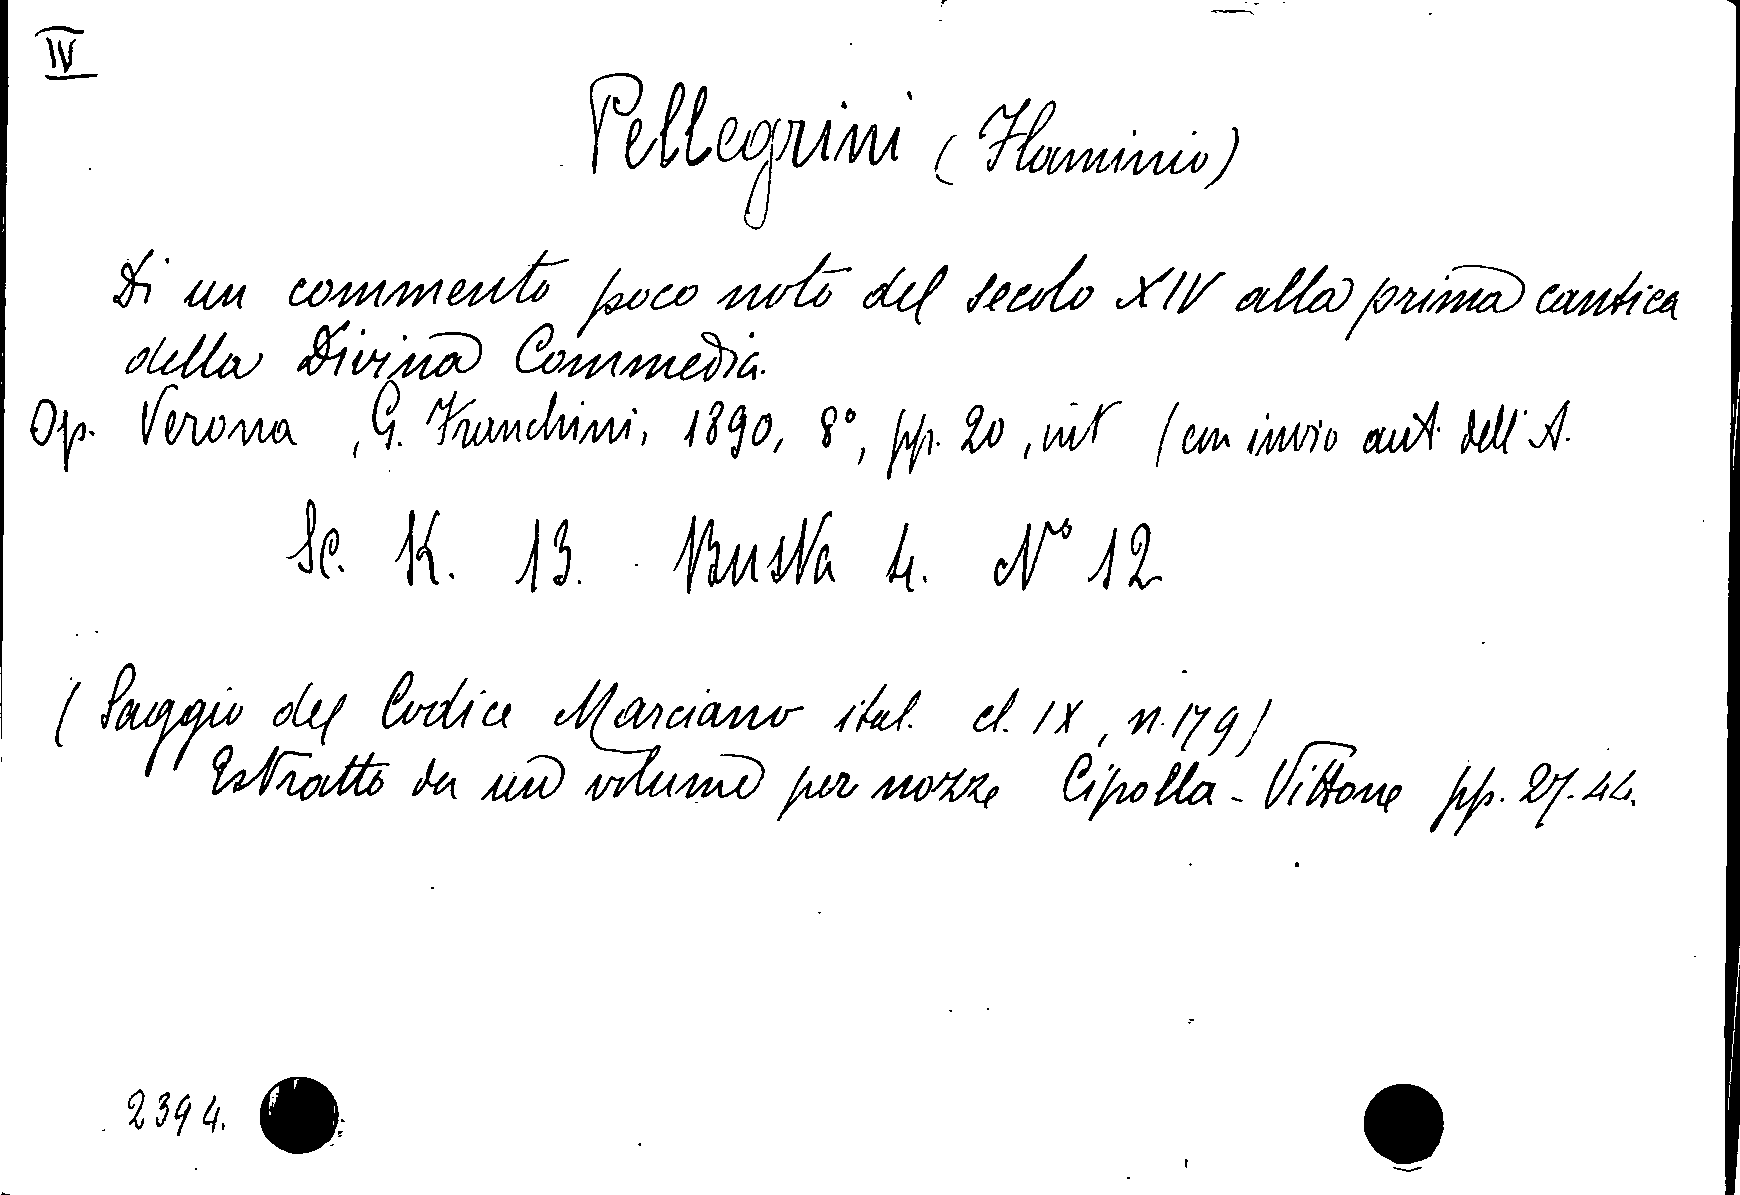 IV
Pellegrini (Flaminio)
Di un commento poco noto del secolo XIV alla prima cantica
della Divina Commedia.
Op. Verona, G. Franchini, 1890, 8°, pp. 20, int (con invio aut. dell'A.
Sc. K. 13. Busta 4. N° 12
(Saggio del Codice Marciano ital. cl. IX, n. 179)
Estratto da un volume per nozze Cipolla-Vittone pp. 27-44.
2394.